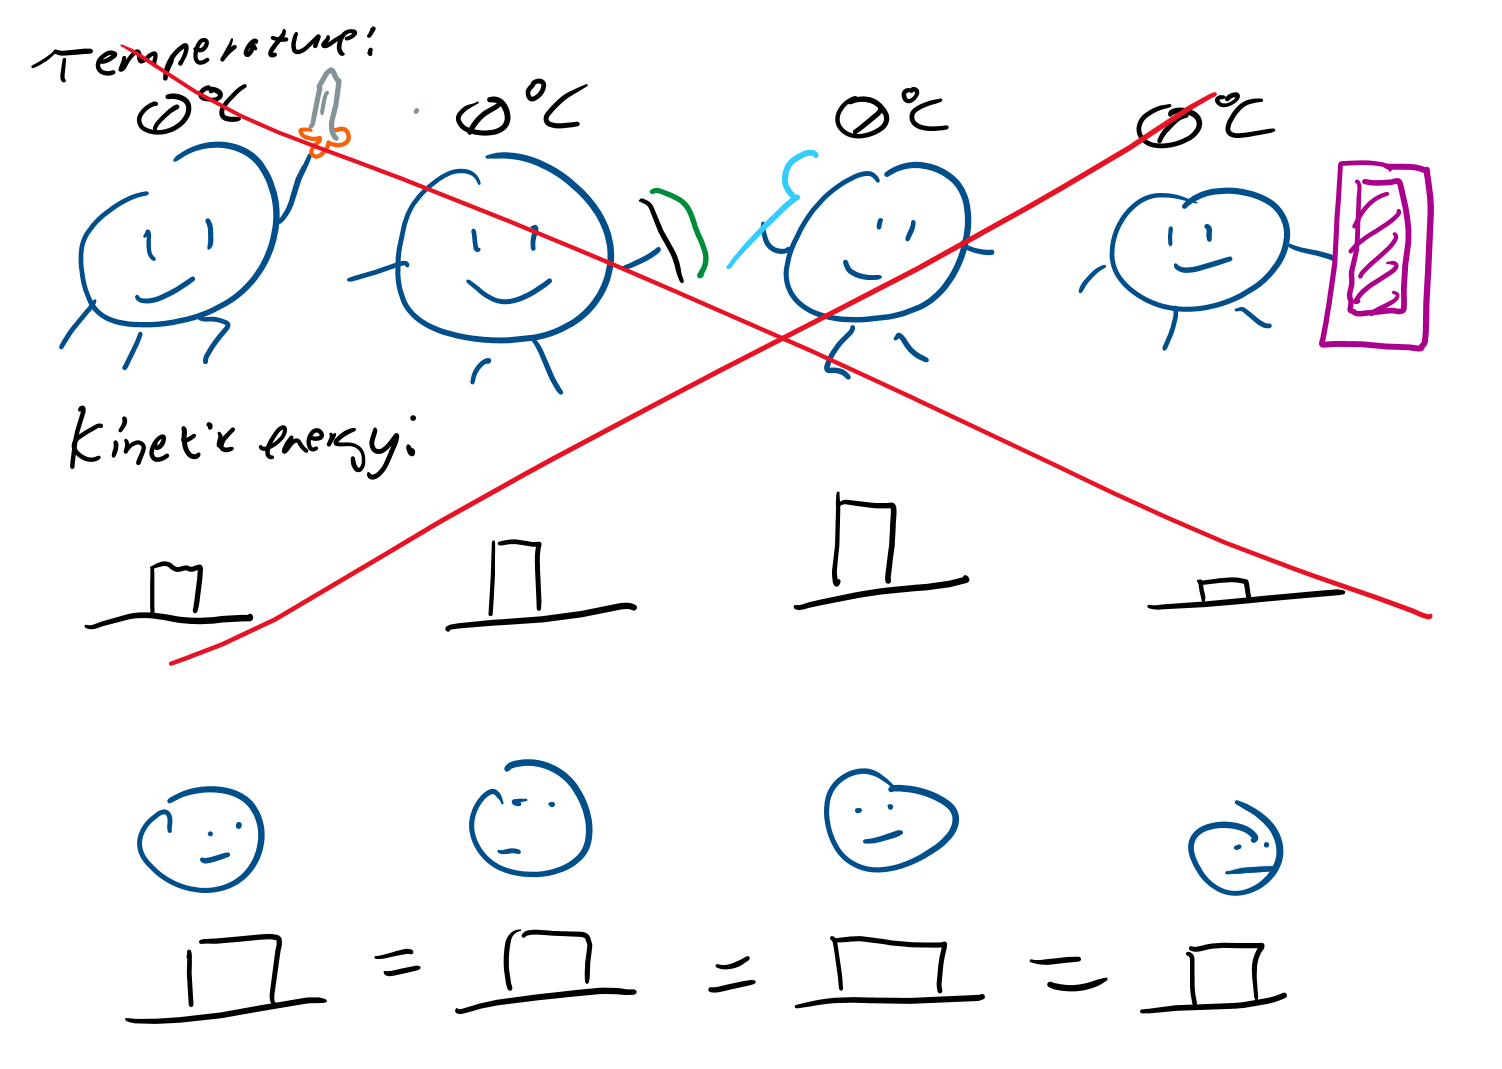 Temperature:
0°C 0°C 0°C 0°C
Kinetic energy:
= = =